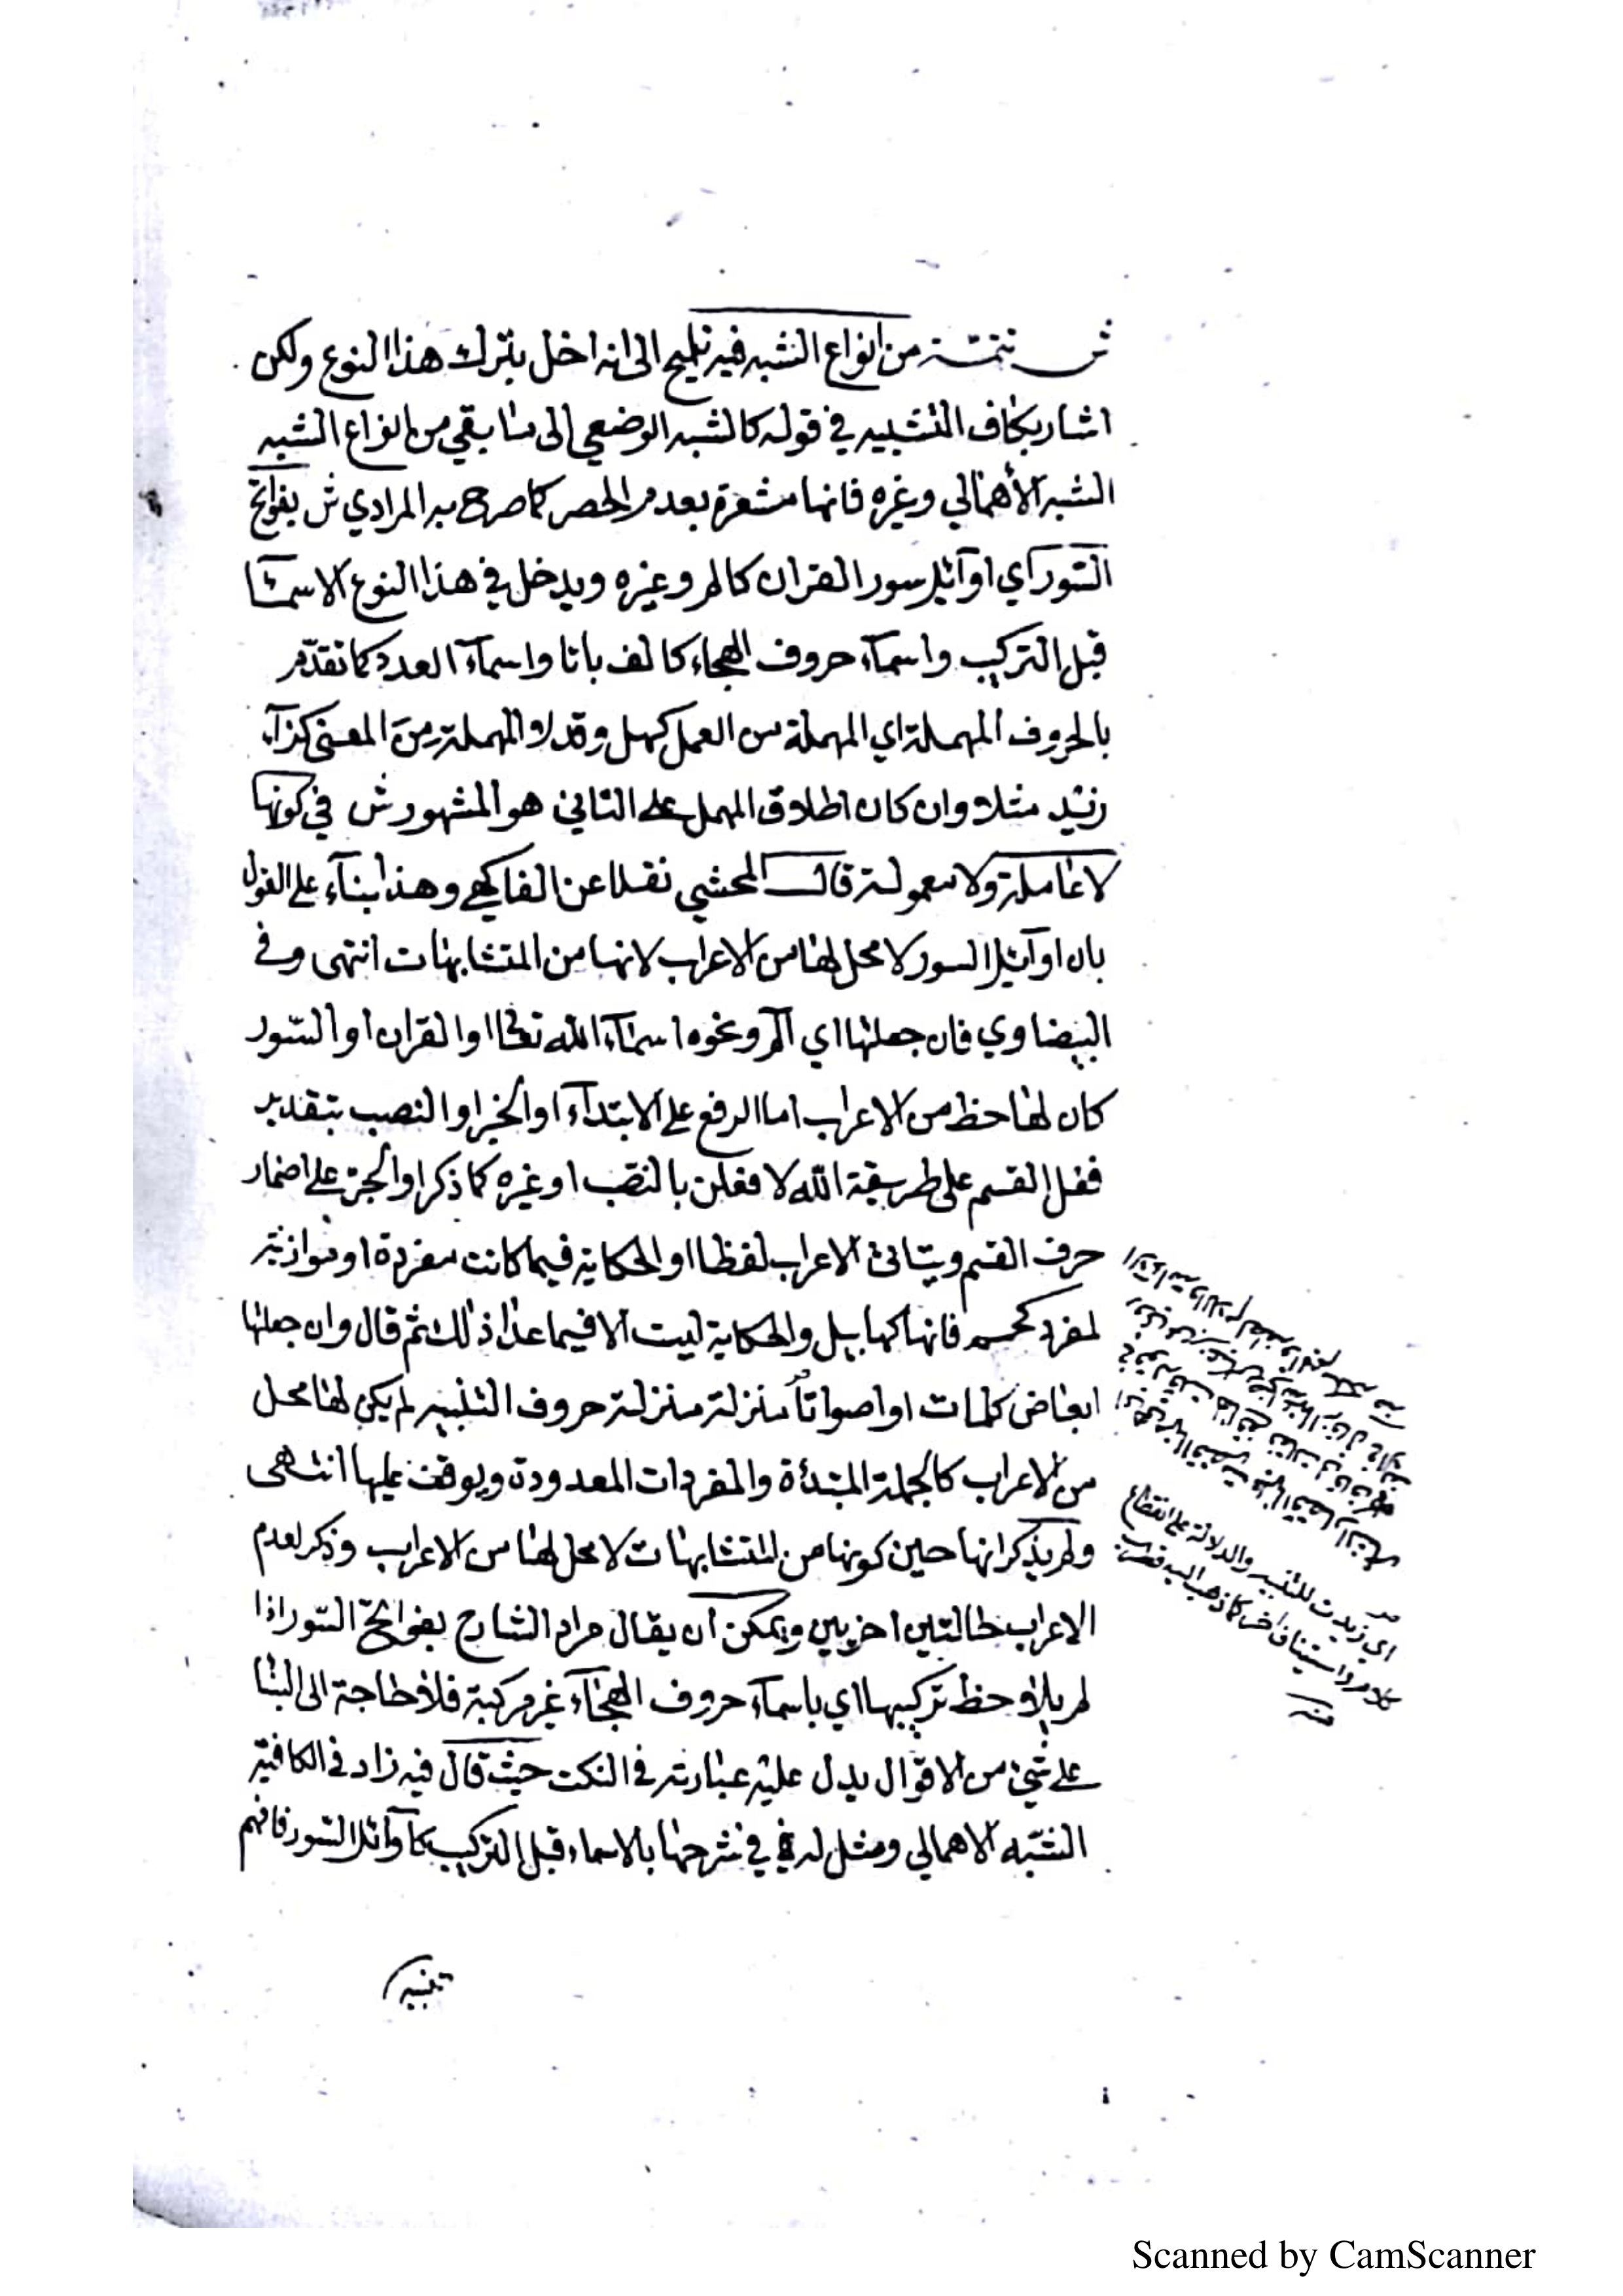 ش تتمة من انواع الشبه فيه تلميح الى انه اخل بترك هذا النوع ولكن
اشار بكاف التشبيه في قوله كالشبه الوضعي الى ما بقي من انواع الشبه
الشبه الأهمالي وغيره فانها مشعرة بعدم الحصر كما صرح به المرادي ش بفواتح
السّور اي اوآئل سور القران كالم وغيره ويدخل في هذا النوع الاسما
قبل التركيب واسمآء حروف الهجاء كالف با تا واسمآء العدد كما تقدّم
بالحروف المهملة اي المهملة من العمل كهل وقد لا المهملة من المعنى كزآء
زيد مثلا وان كان اطلاق المهمل على الثاني هو المشهور ش في كونها
لا عاملة ولا معمولة قال المحشي نقلا عن الفاكهي وهذا بنآء على القول
بان اوآئل السور لا محل لها من الاعراب لانها من المتشابهات انتهى وفي
البيضاوي فان جعلتها اي آلم ونحوه اسمآء الله تعالى او القران او السّور
كان لها حظ من الاعراب اما الرفع على الابتدآء او الخبر او النصب بتقدير
فعل القسم على طريقة الله لافعلن بالنصب او غيره كما ذكر او الجرّ على اضمار
حرف القسم ويتاتى الاعراب لفظا او الحكاية فيما كانت مفردة او موازنة
لمفرد كحم فانها كهابيل والحكاية ليت الا فيما عدا ذلك ثم قال وان جعلتها
ابعاض كلمات او اصواتاً منزلة منزلة حروف التنبيه لم يكن لها محل
من الاعراب كالجملة المبتدأة والمفردات المعدودة ويوقف عليها انتهى
ولم يذكر انها حين كونها من المتشابهات لا محل لها من الاعراب وذكر لعدم
الاعراب حالتين اخريين ويمكن أن يقال مراد الشارح بفواتح السّور اذا
لم يلاحظ تركيبها اي باسمآء حروف الهجآء غير مركبة فلا حاجة الى البنا
على شئ من الاقوال يدل عليه عبارته في النكت حيث قال فيه زاد في الكافية
الشبه الاهمالي ومثل له في شرحها بالاسماء قبل التركيب كآوائل السّور فافهم
اي زيدت للتنبيه والدلالة على انقطاع
كلام واستيناف اخر كما ذهب اليه قطرب
منه
تنبيه
Scanned by CamScanner